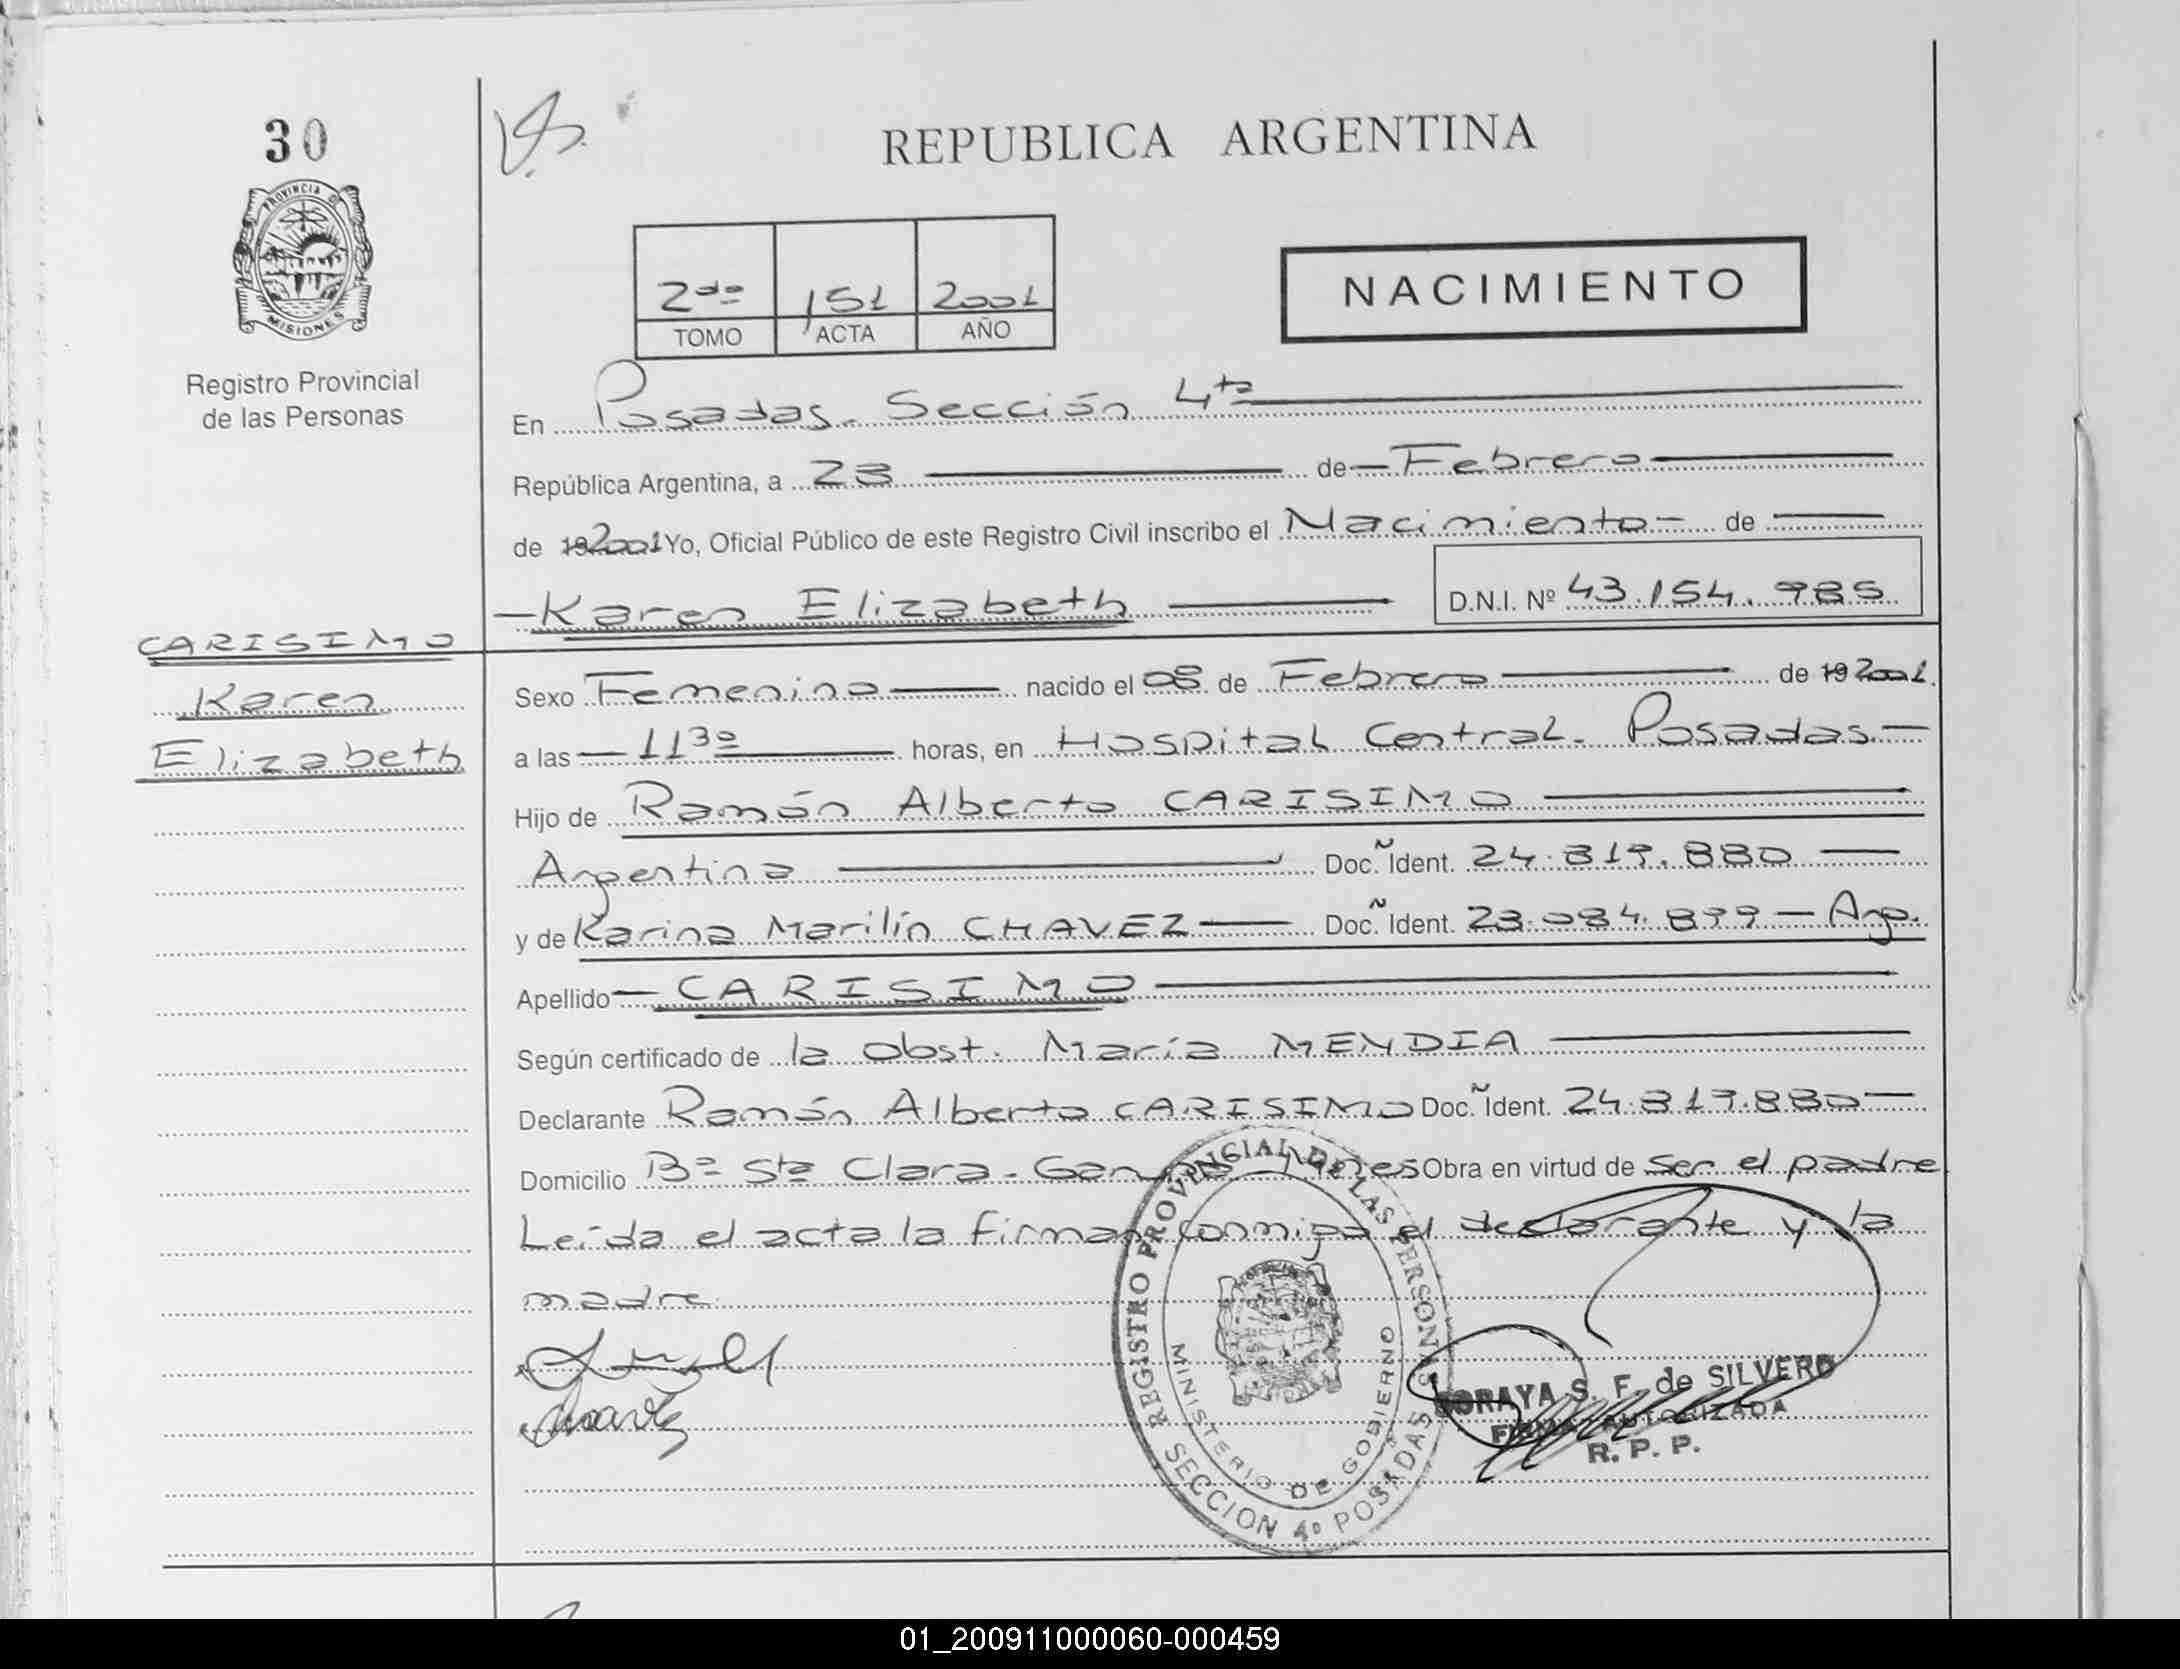 30
REPUBLICA ARGENTINA
PROVINCIA D
MISIONES
Registro Provincial
de las Personas
2do 151 2001
TOMO ACTA AÑO
NACIMIENTO
En Posadas. Sección 4ta
República Argentina, a 23 de Febrero
de 19 2001 Yo, Oficial Público de este Registro Civil inscribo el Nacimiento de
Karen Elizabeth D.N.I. Nº 43.154.985
CARISIMO
Karen
Elizabeth
Sexo Femenino nacido el 08 de Febrero de 19 2001.
a las 11 30 horas, en Hospital Central. Posadas.
Hijo de Ramón Alberto CARISIMO
Argentina Doc. Ident. 24.819.880
y de Karina Marilín CHAVEZ Doc. Ident. 23.084.899 - Arg.
Apellido CARISIMO
Según certificado de la Obst. María MENDIA
Declarante Ramón Alberto CARISIMO Doc. Ident. 24.819.880
Domicilio Bº Sta Clara. Obra en virtud de ser el padre
Leída el acta la firman conmigo el declarante y la
madre
REGISTRO PROVINCIAL DE LAS PERSONAS
MINISTERIO DE GOBIERNO
SECCION 4º POSADAS
SORAYA S. F. de SILVERO
FIRMA AUTORIZADA
R. P. P.
01_200911000060-000459